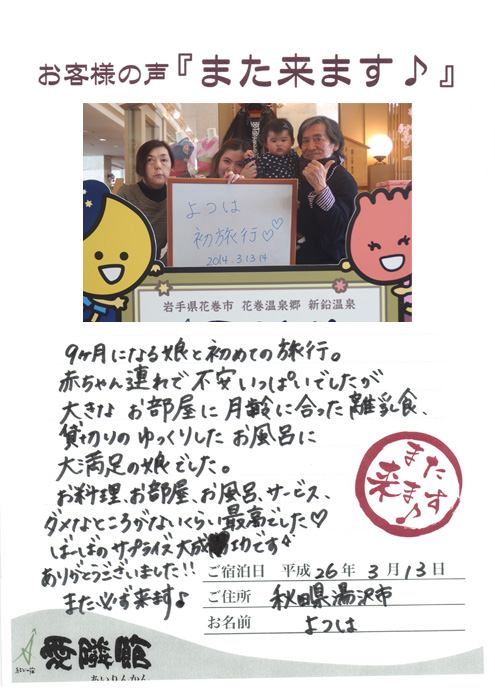 お客様の声『また来ます♪』
よつは
初旅行♡♡
2014.3.13 14
岩手県花巻市 花巻温泉郷 新鉛温泉
9ヶ月になる娘と初めての旅行。
赤ちゃん連れで不安いっぱいでしたが
大きな お部屋に 月齢に合った離乳食、
貸切りの ゆっくりした お風呂に
大満足の娘でした。
お料理、お部屋、お風呂、サービス、
ダメなところがないくらい最高でした♡
ばーばのサプライズ大成功です
ありがとうございました!!
また必ず来ます♪
また
来ます♪
ご宿泊日 平成26年3月13日
ご住所 秋田県湯沢市
お名前 よつは
愛隣館
あいりんかん